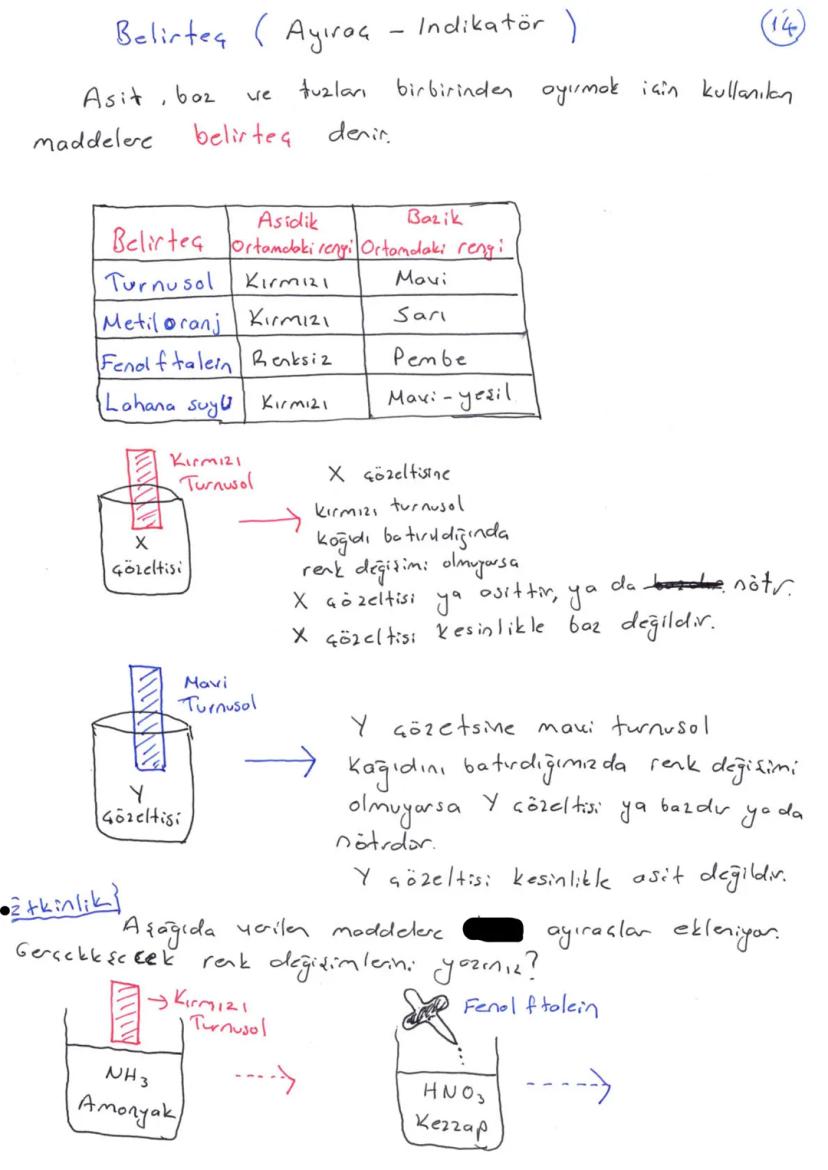 Belirteç ( Ayıraç - Indikatör )
14
Asit, baz ve tuzları birbirinden ayırmak için kullanılan
maddelere belirteç denir.
Belirteç Asidik Ortamdaki rengi Bazik Ortamdaki rengi
Turnusol Kırmızı Mavi
Metil oranj Kırmızı Sarı
Fenolftalein Renksiz Pembe
Lahana suyu Kırmızı Mavi-yeşil
Kırmızı
Turnusol
X
çözeltisi
X çözeltisine
kırmızı turnusol
kağıdı batırıldığında
renk değişimi olmuyorsa
X çözeltisi ya asittir, ya da nötr.
X çözeltisi kesinlikle baz değildir.
Mavi
Turnusol
Y
çözeltisi
Y çözetsine mavi turnusol
kağıdını batırdığımızda renk değişimi
olmuyorsa Y çözeltisi ya bazdır ya da
nötrdür.
Y çözeltisi kesinlikle asit değildir.
Etkinlik}
Aşağıda verilen maddelere ayıraçlar ekleniyor.
Gerçekleşecek renk değişimlerini yazınız?
Kırmızı
Turnusol
NH3
Amonyak
Fenolftalein
HNO3
Kezzap